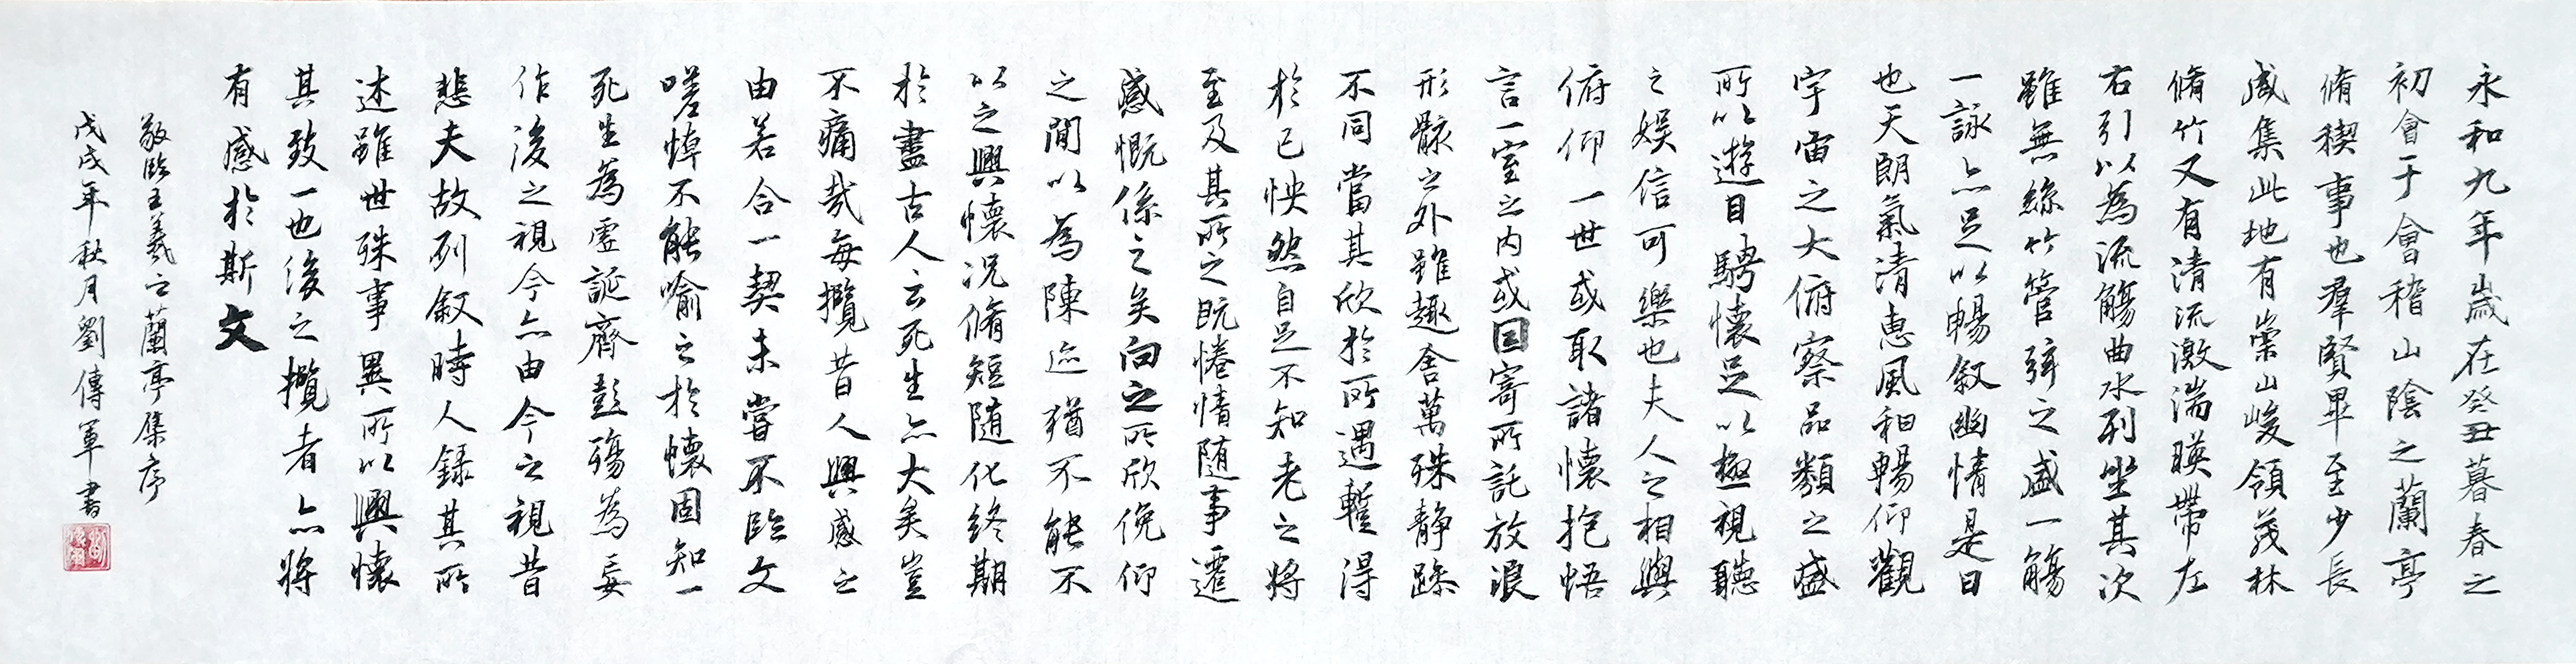 永和九年歲在癸丑暮春之
初會于會稽山陰之蘭亭
脩稧事也羣賢畢至少長
咸集此地有崇山峻領茂林
脩竹又有清流激湍暎帶左
右引以為流觴曲水列坐其次
雖無絲竹管弦之盛一觴
一詠亦足以暢叙幽情是日
也天朗氣清惠風和暢仰觀
宇宙之大俯察品類之盛
所以遊目騁懷足以極視聽
之娛信可樂也夫人之相與
俯仰一世或取諸懷抱悟
言一室之内或因寄所託放浪
形骸之外雖趣舍萬殊静躁
不同當其欣於所遇蹔得
於己怏然自足不知老之將
至及其所之既惓情随事遷
感慨係之矣向之所欣俛仰
之閒以為陳迹猶不能不
以之興懷況脩短随化終期
於盡古人云死生亦大矣豈
不痛哉每攬昔人興感之
由若合一契未嘗不臨文
嗟悼不能喻之於懷固知一
死生為虛誕齊彭殤為妄
作後之視今亦由今之視昔
悲夫故列叙時人録其所
述雖世殊事異所以興懷
其致一也後之攬者亦將
有感於斯文
敬臨王羲之蘭亭集序
戊戌年秋月劉傳軍書